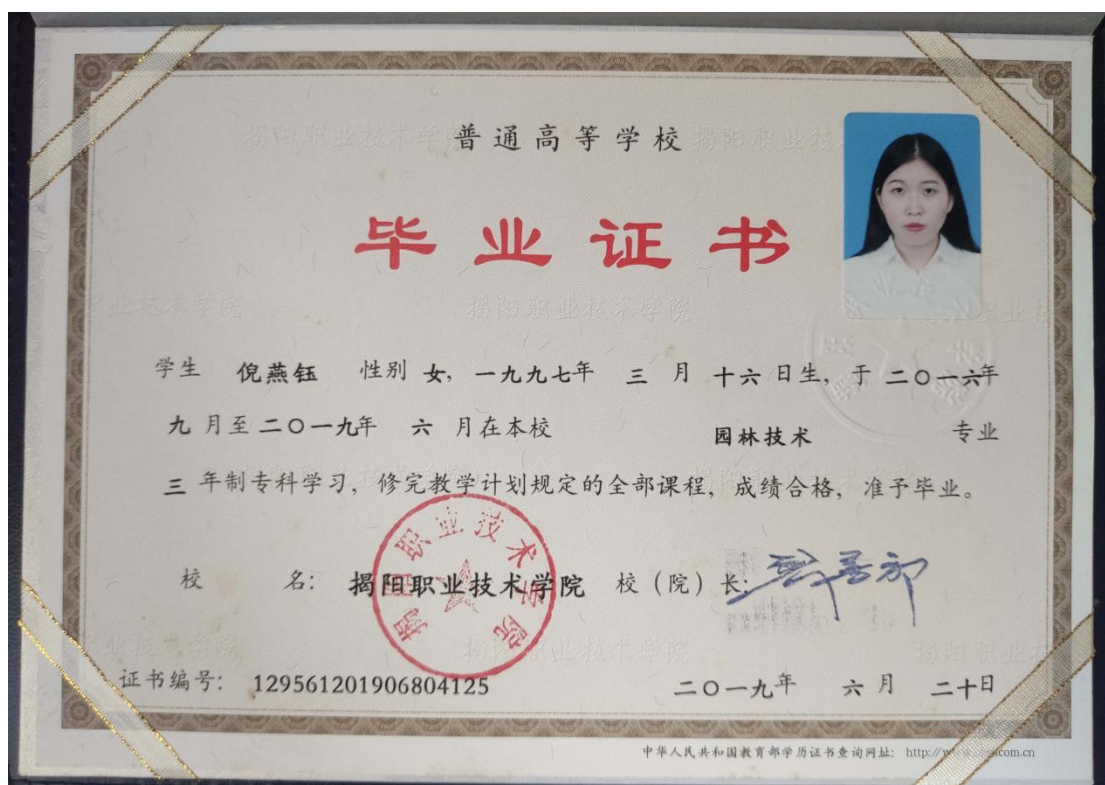 普通高等学校
毕业证书
学生 倪燕钰 性别 女，一九九七年 三 月 十六 日生，于 二〇一六年
九 月至 二〇一九年 六 月在本校 园林技术 专业
三 年制专科学习，修完教学计划规定的全部课程，成绩合格，准予毕业。
校 名： 揭阳职业技术学院 校（院）长：
揭阳职业技术学院
证书编号： 129561201906804125 二〇一九年 六 月 二十日
中华人民共和国教育部学历证书查询网址： http://
揭阳职业技术学院